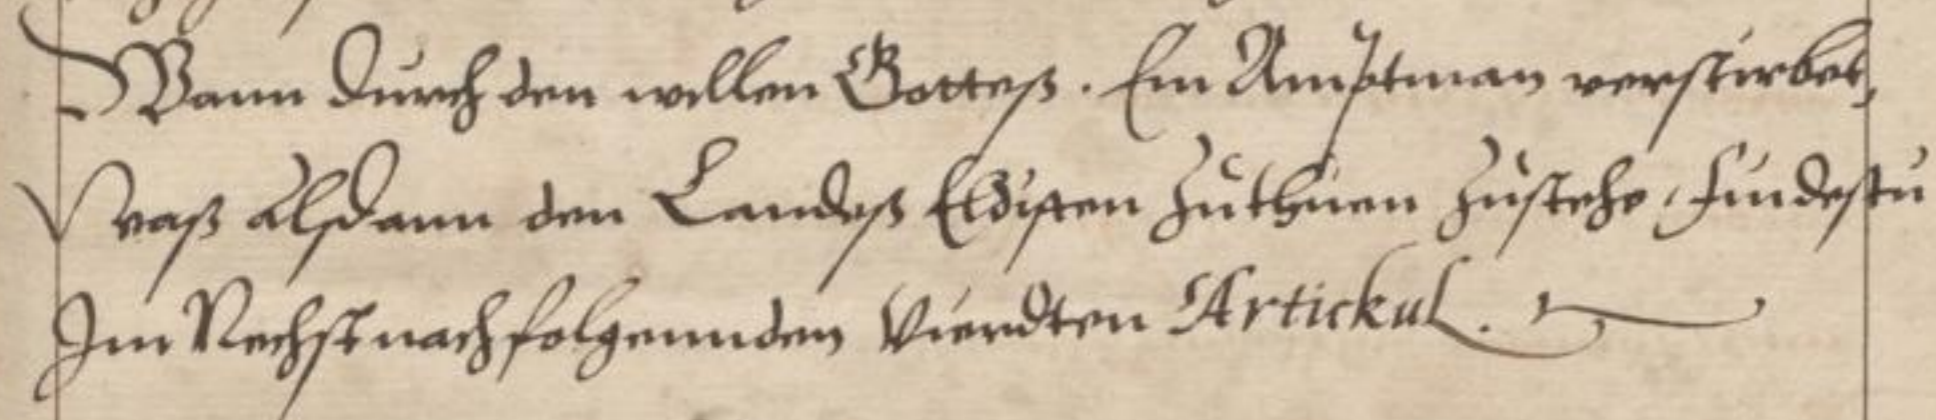 Wann durch den willen Gottes. Ein Amptman verstirbet,
Waß alsdann den Landeß Eldisten zuthuen zustehe, findestu
Im Nechst nachfolgennden Vierdten Artickul.